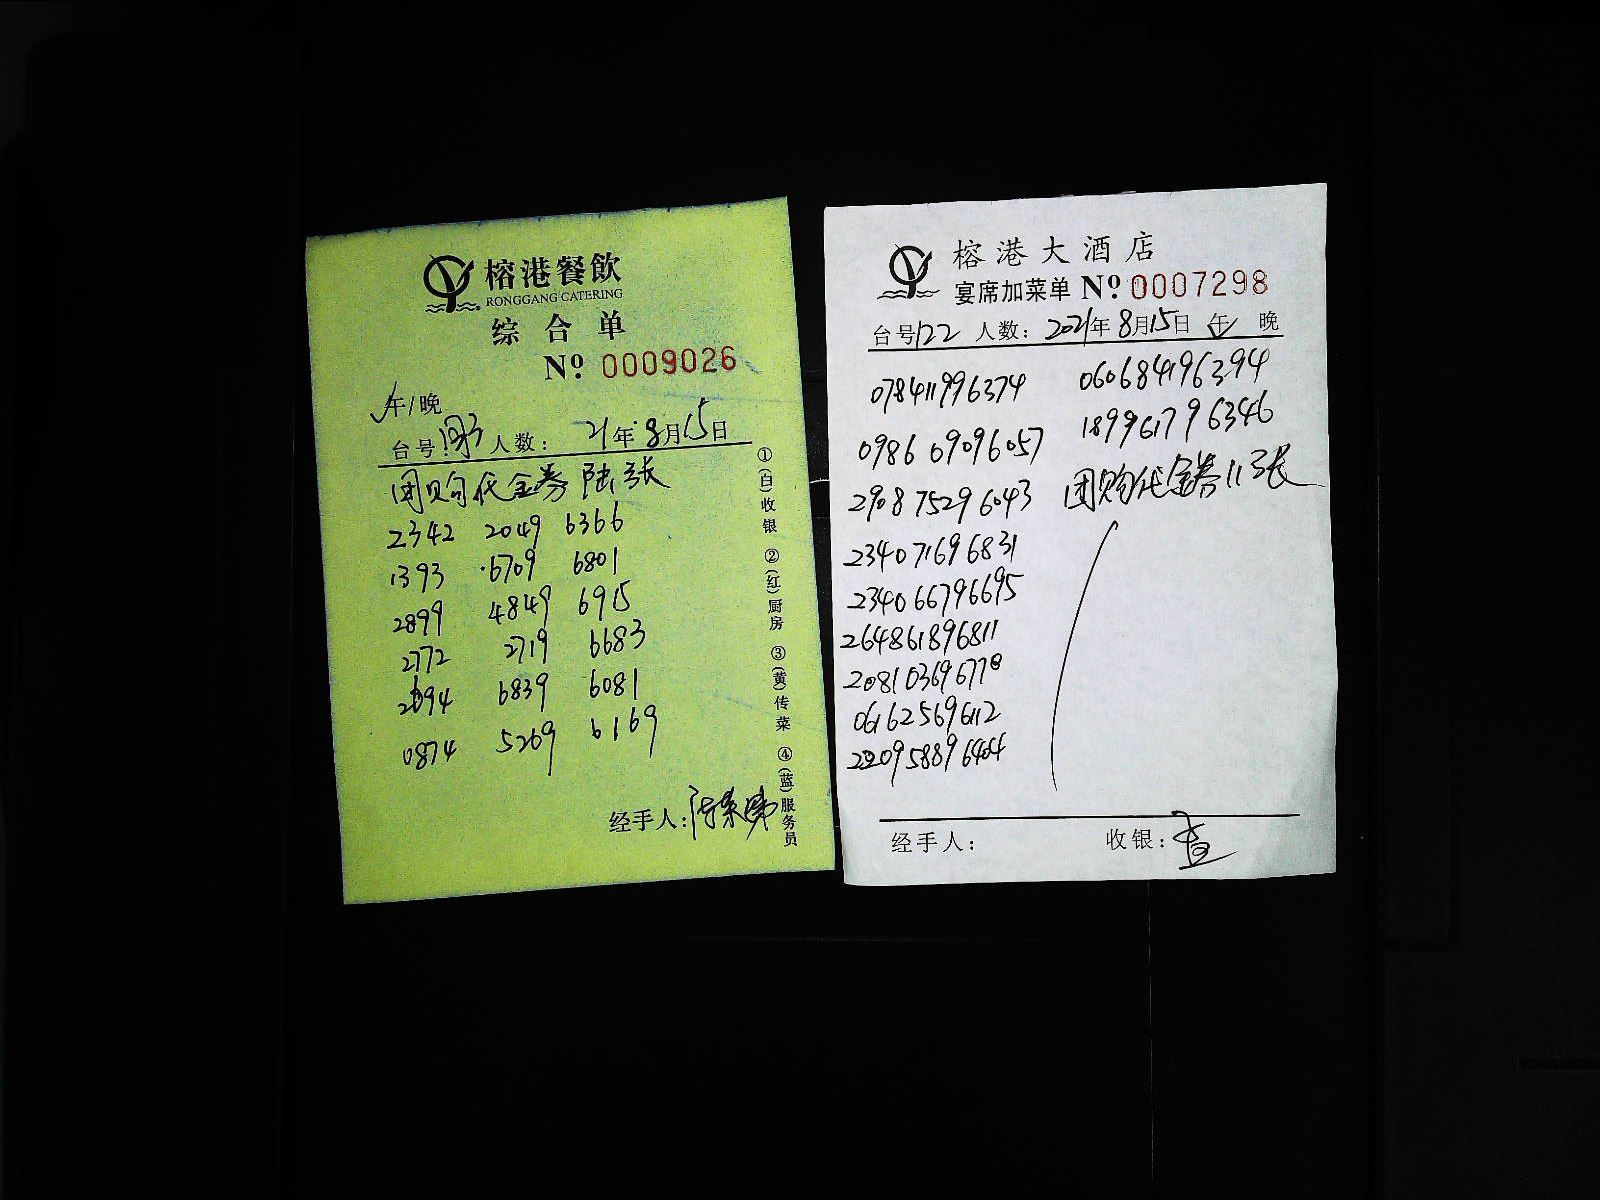 榕港餐飲
RONGGANG CATERING
综合单
Nº 0009026
午/晚
台号: 人数: 21年8月15日
团购代金券 陆张
2342 2049 6366
1393 6709 6801
2899 4849 6915
2772 2719 6683
2694 6839 6081
0874 5269 6169
经手人:
①(白)收银 ②(红)厨房 ③(黄)传菜 ④(蓝)服务员
榕港大酒店
宴席加菜单 Nº 0007298
台号122 人数: 2021年8月15日 午 晚
078411996374 060684196394
0986 09096057 189961796346
2908 75296043 团购代金券11张
234071696831
234066796695
264861896811
208103696778
061625696112
220958896404
经手人: 收银: